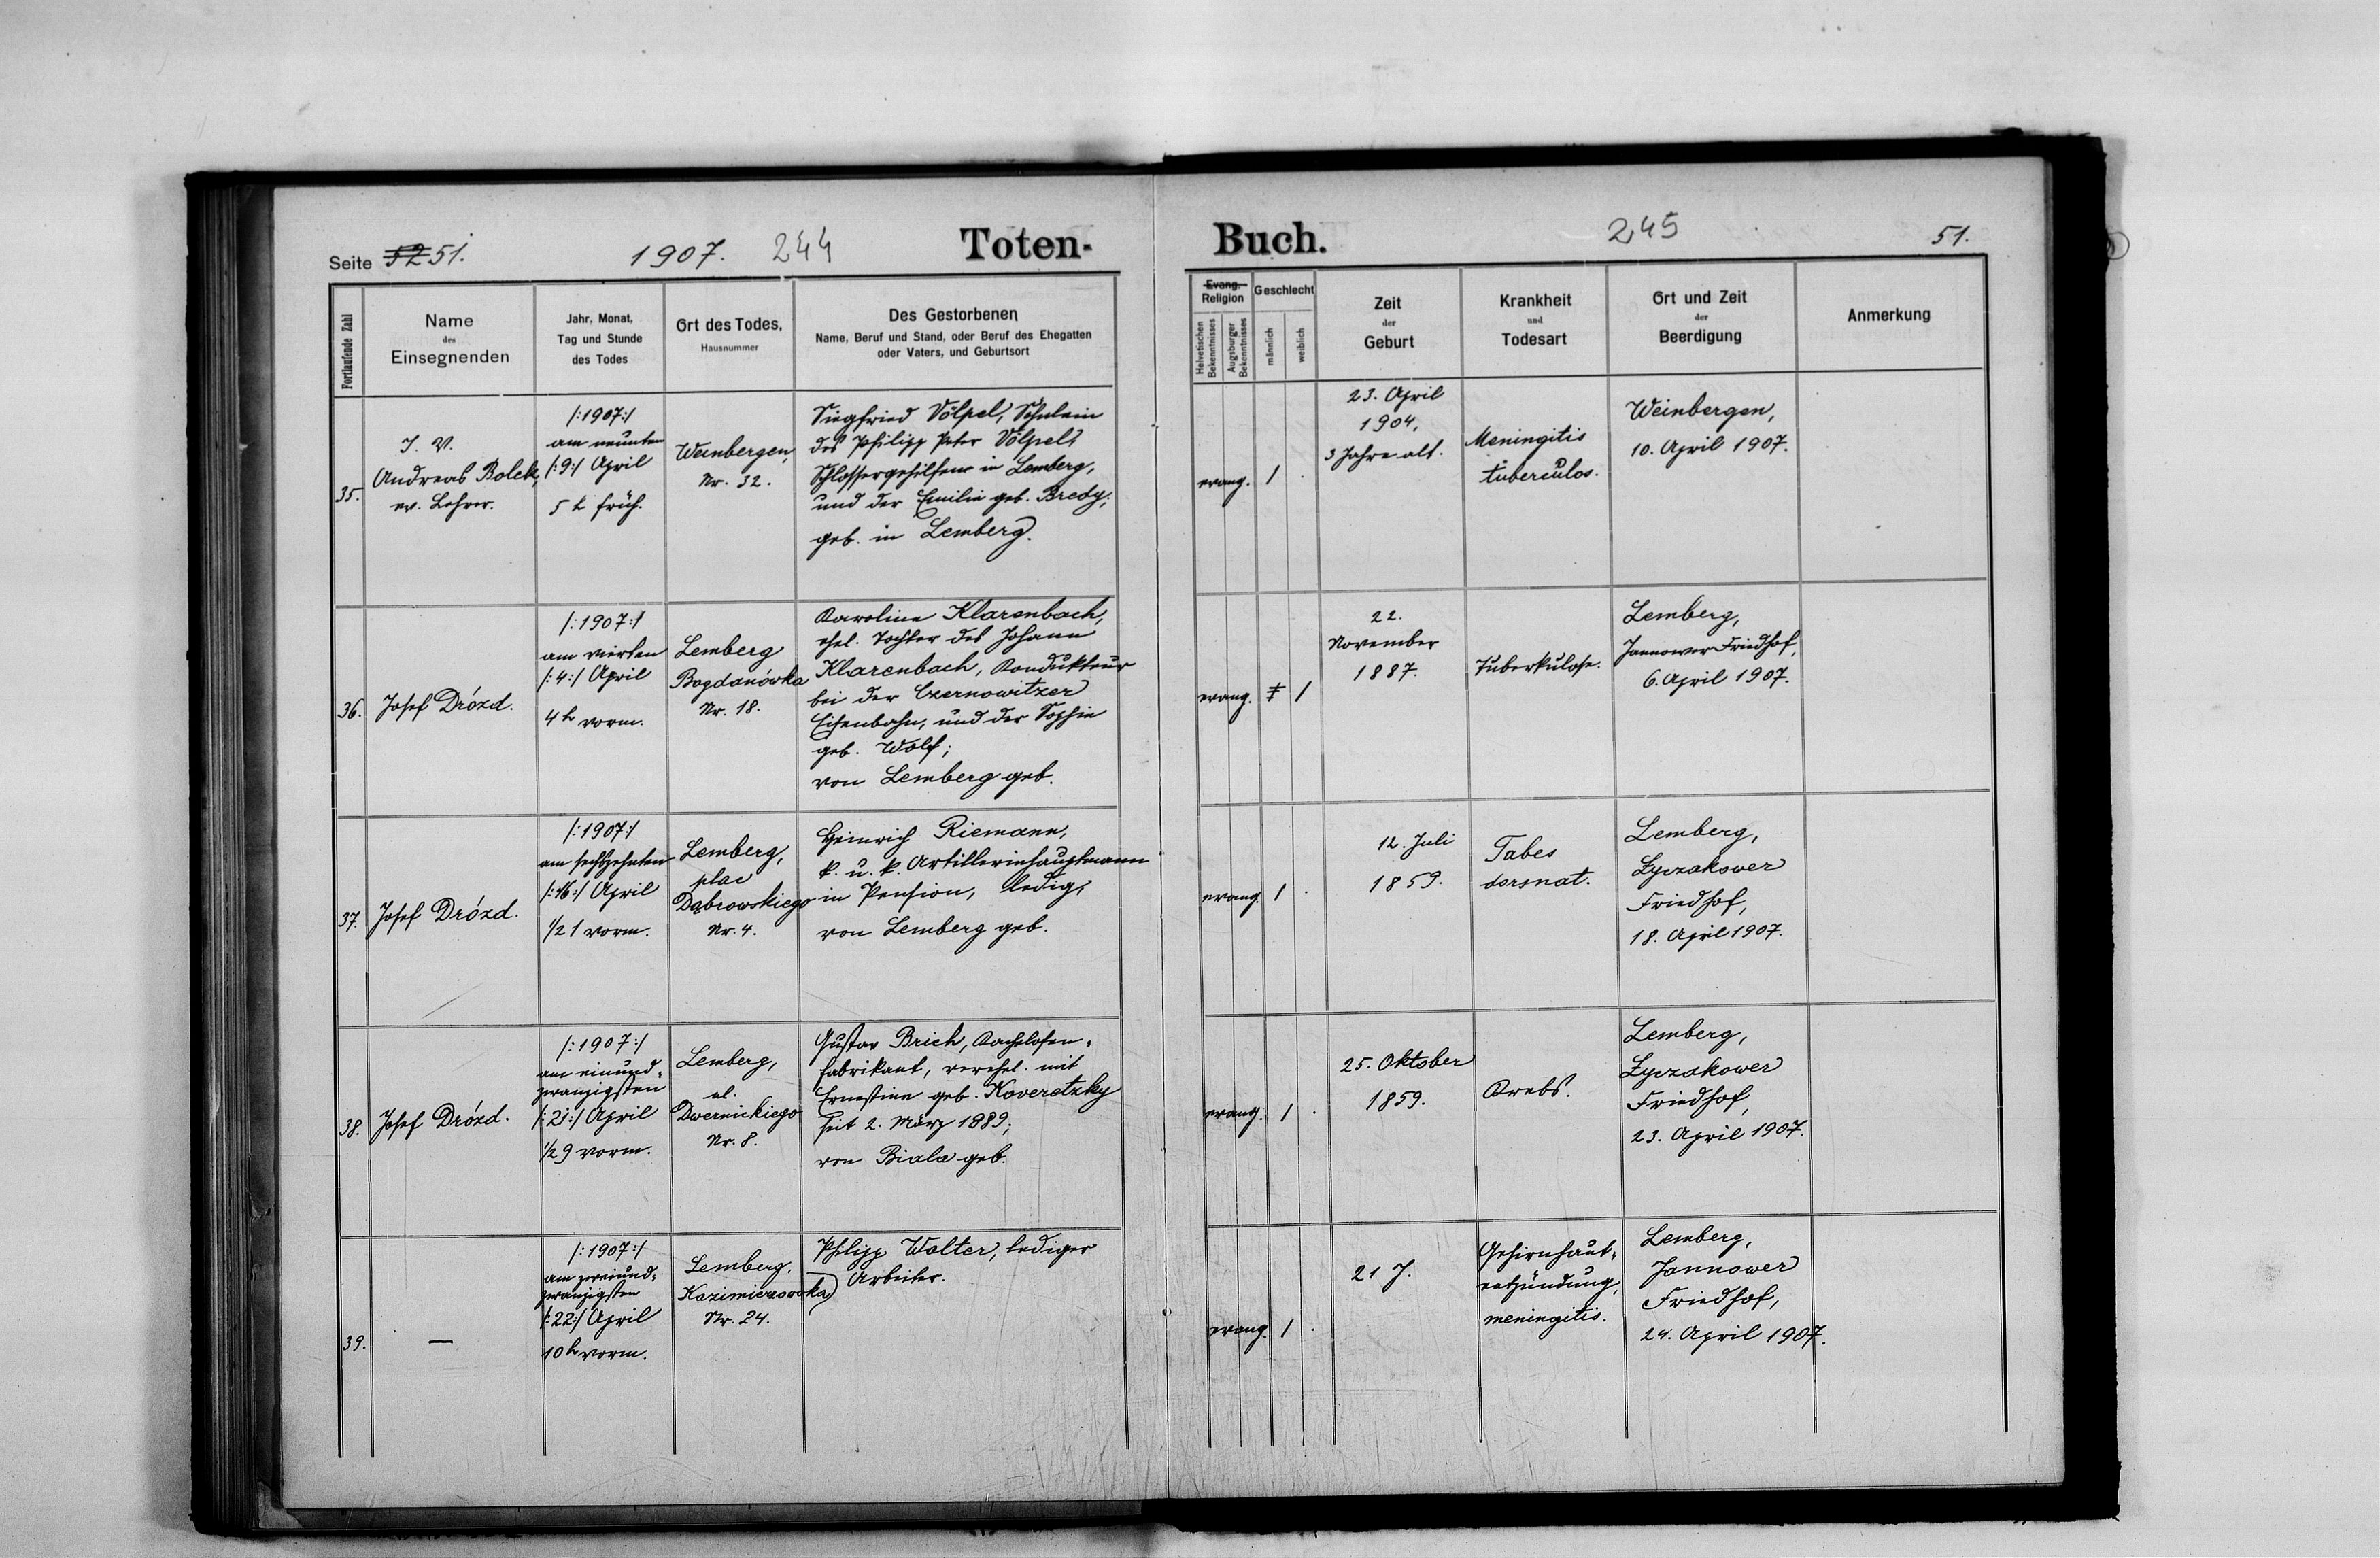 Seite 52 51.
1907. 244
Toten-
Buch.
245
51.
Fortlaufende Zahl
Name
des
Einsegnenden
Jahr, Monat,
Tag und Stunde
des Todes
Ort des Todes,
Hausnummer
Des Gestorbenen
Name, Beruf und Stand, oder Beruf des Ehegatten
oder Vaters, und Geburtsort
Evang.
Religion
Helvetischen
Bekenntnisses
Augsburger
Bekenntnisses
Geschlecht
männlich
weiblich
Zeit
der
Geburt
Krankheit
und
Todesart
Ort und Zeit
der
Beerdigung
Anmerkung
35.
I. V.
Andreas Bolek,
ev. Lehrer.
/:1907:/
am neunten
/:9:/ April
5 h früh.
Weinbergen,
Nr. 32.
Siegfried Völpel, Söhnlein
des Philipp Peter Völpel,
Schlossergehilfen in Lemberg,
und der Emilie geb. Bredy;
geb. in Lemberg.
evang.
1
23. April
1904,
3 Jahre alt.
Meningitis
tuberculos.
Weinbergen,
10. April 1907.
36.
Josef Drózd.
/:1907:/
am vierten
/:4:/ April
4 h vorm.
Lemberg
Bogdanówka
Nr. 18.
Karoline Klarenbach,
ehel. Tochter des Johann
Klarenbach, Kondukteur
bei der Czernowitzer
Eisenbahn, und der Sophie
geb. Wolf;
von Lemberg geb.
evang.
1
1
22.
November
1887.
Tuberkulose.
Lemberg,
Jannower Friedhof,
6. April 1907.
37.
Josef Drózd.
/:1907:/
am sechszehnten
/:16:/ April
1/2 1 vorm.
Lemberg,
plac
Dąbrowskiego
Nr. 4.
Heinrich Riemann,
k. u. k. Artilleriehauptmann
in Pension, ledig;
von Lemberg geb.
evang.
1
12. Juli
1859.
Tabes
dorsnat.
Lemberg,
Łyczakower
Friedhof,
18. April 1907.
38.
Josef Drózd.
/:1907:/
am einund-
zwanzigsten
/:21:/ April
1/2 9 vorm.
Lemberg,
ul.
Dwernickiego
Nr. 8.
Gustav Brich, Kachelofen-
fabrikant, verehel. mit
Ernestine geb. Koveretzky
seit 2. März 1889;
von Biala geb.
evang.
1
25. Oktober
1859.
Krebs.
Lemberg,
Łyczakower
Friedhof,
23. April 1907.
39.
—
/:1907:/
am zweiund-
zwanzigsten
/:22:/ April
10 h vorm.
Lemberg,
Kazimierzowska
Nr. 24.
Philipp Walter, lediger
Arbeiter.
evang.
1
21 J.
Gehirnhaut-
entzündung,
meningitis.
Lemberg,
Jannower
Friedhof,
24. April 1907.